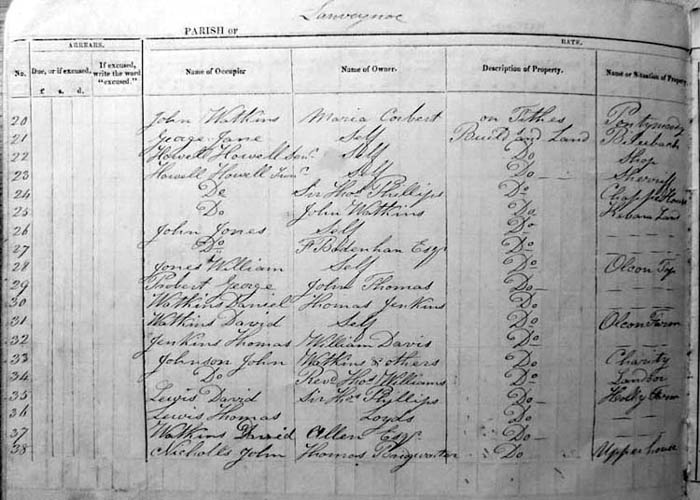 Lanveynoe
PARISH OF
ARREARS. RATE.
No. Due, or if excused, If excused, write the word "excused." Name of Occupier Name of Owner. Description of Property. Name or Situation of Property
£ s. d.
20 John Watkins Maria Corbert on Tithes
21 George Jane Self Build and Land
22 Howell Howell Senr. Self Do Shop
23 Howell Howell Junr. Self Do
24 Do Sir Thos Phillips Do Chappel House
25 Do John Watkins Do Land
26 John Jones Self Do
27 Do F Bodenhan Esqr Do
28 Jones William Self Do Olcon Top
29 Probert George John Thomas Do
30 Watkins Daniel Thomas Jenkins Do
31 Watkins David Self Do Olcon Farm
32 Jenkins Thomas William Davis Do
33 Johnson John Watkins & others Do Charity
34 Do Revd Thos Williams Do Landor
35 Lewis David Sir Thos Phillips Do Farm
36 Lewis Thomas Loyds Do
37 Watkins David Allen Esqr Do
38 Nicholls John Thomas Do Upper house